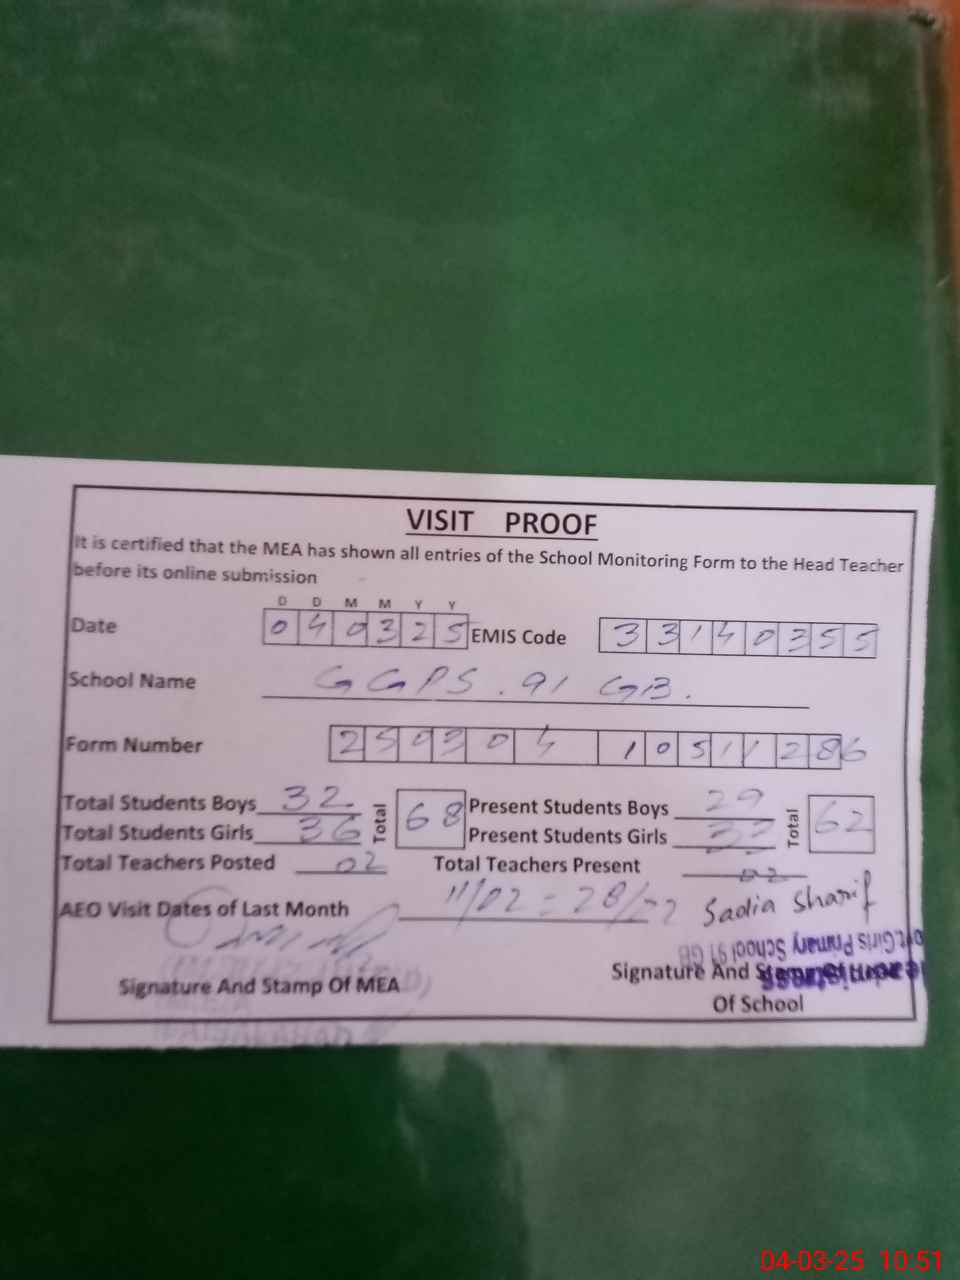 VISIT PROOF
It is certified that the MEA has shown all entries of the School Monitoring Form to the Head Teacher
before its online submission
D D M M Y Y
Date 040325 EMIS Code 33140355
School Name GGPS. 91 GB.
Form Number 250304 10511286
Total Students Boys 32 Total 68 Present Students Boys 29 Total 62
Total Students Girls 36 Present Students Girls 33
Total Teachers Posted 02 Total Teachers Present 02
AEO Visit Dates of Last Month 11/02 = 28/02 Sadia Sharif
Girls Primary School 91 GB
Signature And Stamp Of MEA Signature And Stamp
Of School
04-03-25 10:51